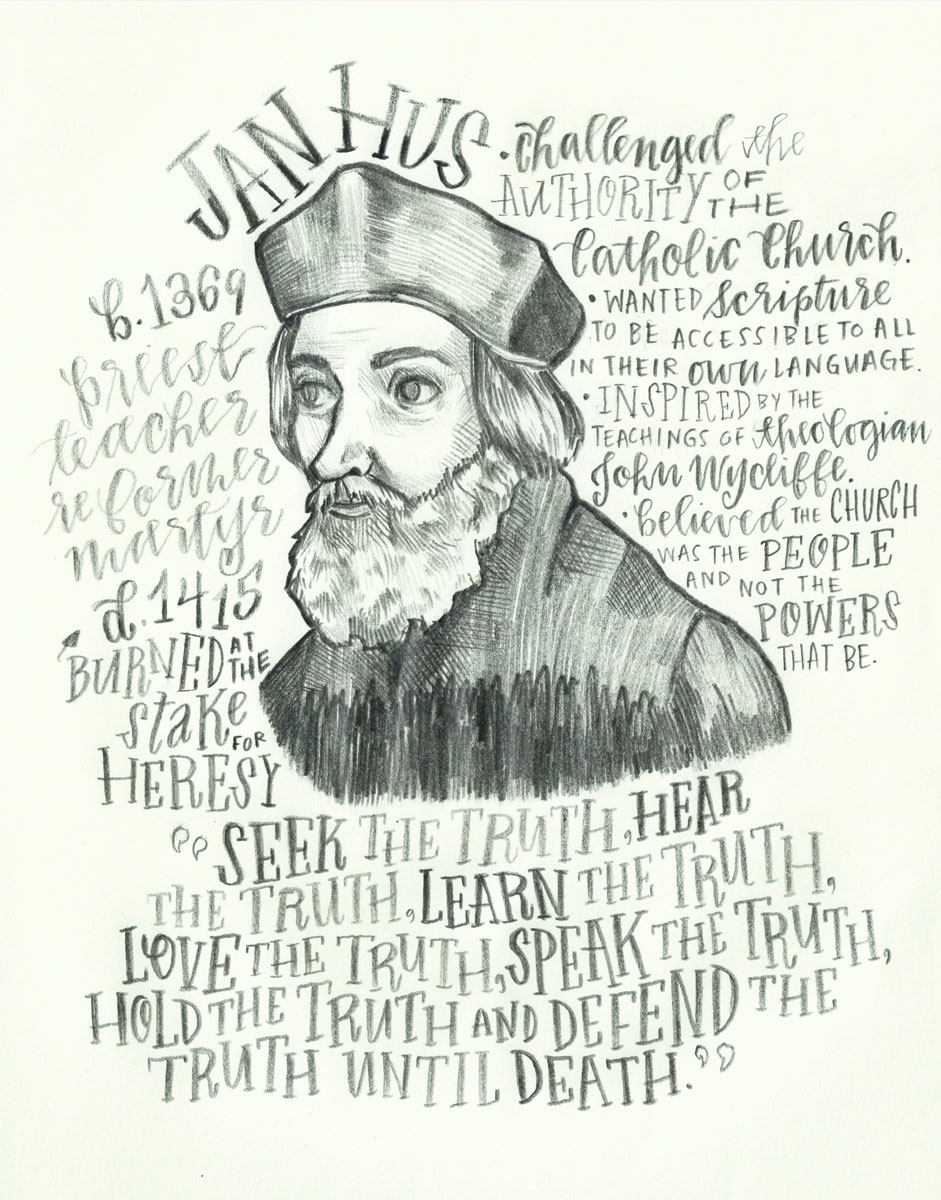 JAN HUS
b. 1369
priest
teacher
reformer
martyr
d. 1415
BURNED AT THE
stake FOR
HERESY
• challenged the
AUTHORITY OF THE
Catholic Church.
• WANTED scripture
TO BE ACCESSIBLE TO ALL
IN THEIR own LANGUAGE.
• INSPIRED BY THE
TEACHINGS OF theologian
John Wycliffe.
• believed THE CHURCH
WAS THE PEOPLE
AND NOT THE
POWERS
THAT BE.
“SEEK THE TRUTH, HEAR
THE TRUTH, LEARN THE TRUTH,
LOVE THE TRUTH, SPEAK THE TRUTH,
HOLD THE TRUTH AND DEFEND THE
TRUTH UNTIL DEATH.”